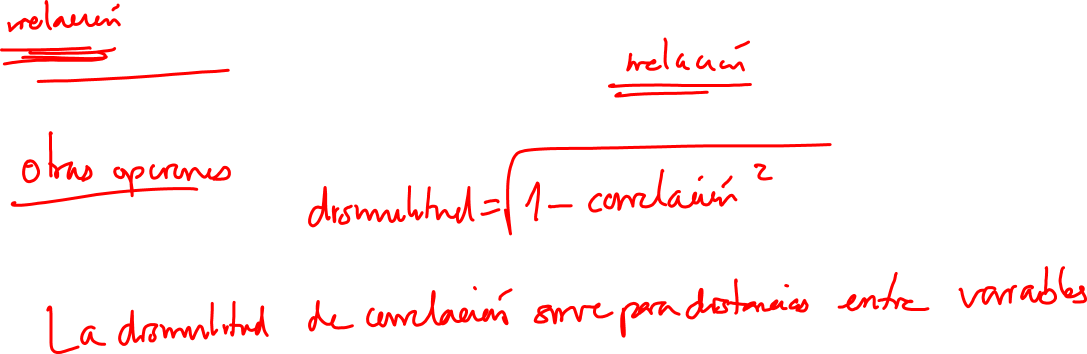 rrelación
rrelación
otras opciones
disimilitud = √(1 - correlación²)
La disimilitud de correlación sirve para distancias entre variables